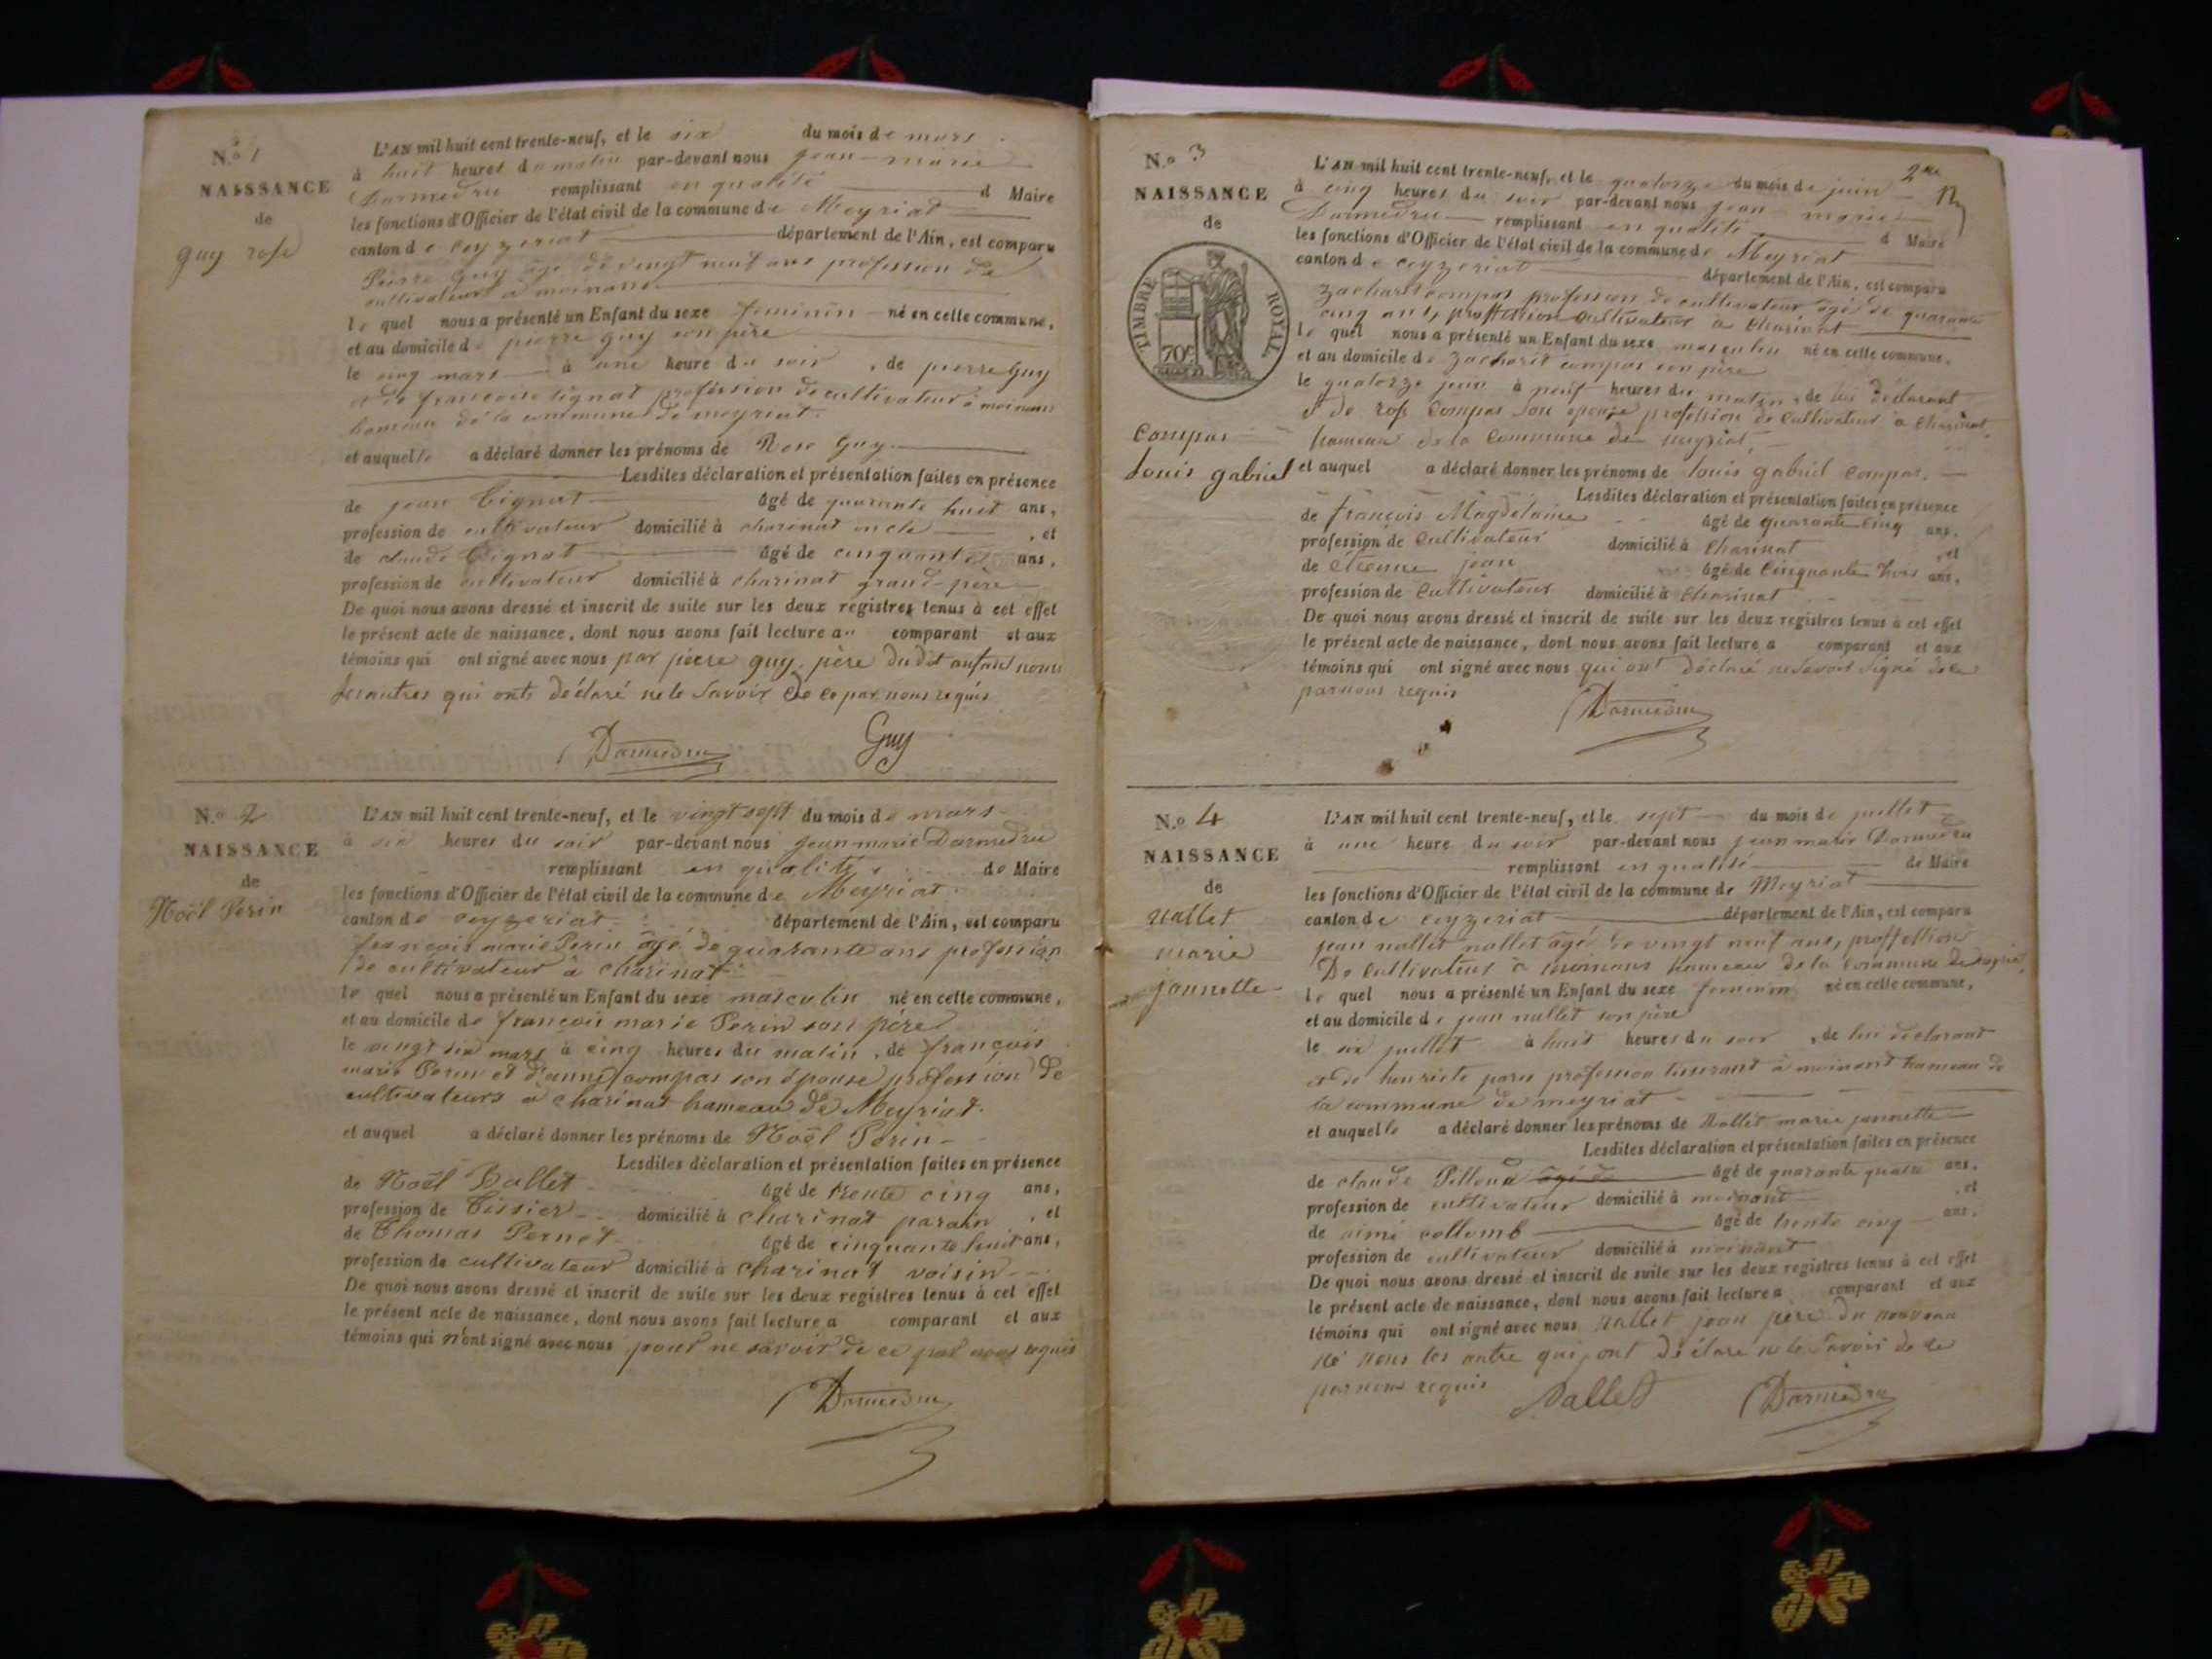 N.º 1
NAISSANCE
de
guy rose
L'AN mil huit cent trente-neuf, et le six du mois de mars
à huit heures du matin par-devant nous jean-marie
Darmedru remplissant en qualité d Maire
les fonctions d'Officier de l'état civil de la commune de Meyriat
canton de ceyzeriat département de l'Ain, est comparu
Pierre Guy âgé de vingt neuf ans profession de
cultivateur a
le quel nous a présenté un Enfant du sexe feminin né en cette commune,
et au domicile de pierre guy son père
le cinq mars à une heure du soir, de pierre guy
et de francoise tignat profession de cultivateur à
hameau de la commune de meyriat
et auquelle a déclaré donner les prénoms de Rose Guy
Lesdites déclaration et présentation faites en présence
de jean Tignat âgé de quarante huit ans,
profession de cultivateur domicilié à charinat oncle, et
de claude Tignat âgé de cinquante ans,
profession de cultivateur domicilié à charinat grand-père
De quoi nous avons dressé et inscrit de suite sur les deux registres tenus à cet effet
le présent acte de naissance, dont nous avons fait lecture au comparant et aux
témoins qui ont signé avec nous par pierre guy père dudit enfant nons
les autres qui onts déclaré ne le Savoir De ce par nous requis
Darmedru Guy
N.º 2
NAISSANCE
de
Noël Perin
L'AN mil huit cent trente-neuf, et le vingt sept du mois de mars
à six heures du soir par-devant nous jean marie Darmedru
remplissant en qualité de Maire
les fonctions d'Officier de l'état civil de la commune de Meyriat
canton de ceyzeriat département de l'Ain, est comparu
françois marie Perin âgé de quarante ans profession
de cultivateur à charinat
le quel nous a présenté un Enfant du sexe masculin né en cette commune,
et au domicile de françois marie Perin son père
le vingt six mars à cinq heures du matin, de françois
marie Perin et d'anne compas son épouse profession de
cultivateurs à charinat hameau de Meyriat.
et auquel a déclaré donner les prénoms de Noël Perin
Lesdites déclaration et présentation faites en présence
de Noël Ballet âgé de trente cinq ans,
profession de Tissier domicilié à charinat parain, et
de Thomas Pernet âgé de cinquante huit ans,
profession de cultivateur domicilié à charinat voisin
De quoi nous avons dressé et inscrit de suite sur les deux registres tenus à cet effet
le présent acte de naissance, dont nous avons fait lecture a comparant et aux
témoins qui n'ont signé avec nous pour ne savoir de ce par nous requis
Darmedru
2me
N.º 3
NAISSANCE
de
TIMBRE ROYAL
70c
Compas
Louis gabriel
L'AN mil huit cent trente-neuf, et le quatorze du mois de juin
à cinq heures du soir par-devant nous jean marie
Darmedru remplissant en qualité d Maire
les fonctions d'Officier de l'état civil de la commune de Meyriat
canton de ceyzeriat département de l'Ain, est comparu
zacharit compas profession de cultivateur âgé de quarante
cinq ans, proffession cultivateur à charinat
le quel nous a présenté un Enfant du sexe masculin né en cette commune,
et au domicile de zacharit compas son père
le quatorze juin à neuf heures du matin, de lui déclarant
et de rose Compas son epouse profession de Cultivateur à Charinat
hameau de la Commune de meyriat
et auquel a déclaré donner les prénoms de louis gabriel compas.
Lesdites déclaration et présentation faites en présence
de françois Magdelaine âgé de quarante cinq ans,
profession de Cultivateur domicilié à Charinat, et
de étienne jean âgé de Cinquante trois ans,
profession de Cultivateur domicilié à Charinat
De quoi nous avons dressé et inscrit de suite sur les deux registres tenus à cet effet
le présent acte de naissance, dont nous avons fait lecture a comparant et aux
témoins qui ont signé avec nous qui ont déclaré ne savoir signé de ce
par nous requis
Darmedru
N.º 4
NAISSANCE
de
nallet
marie
jannette
L'AN mil huit cent trente-neuf, et le sept du mois de juillet
à une heure du soir par-devant nous jean marie Darmedru
remplissant en qualité de Maire
les fonctions d'Officier de l'état civil de la commune de Meyriat
canton de ceyzeriat département de l'Ain, est comparu
jean nallet nallet âgé de vingt neuf ans, proffession
De Cultivateur à hameau de la Commune de
le quel nous a présenté un Enfant du sexe feminin né en cette commune,
et au domicile de jean nallet son père
le six juillet à huit heures du soir, de lui déclarant
et de henriete profession tisserant à moinant hameau de
la commune de meyriat
et auquelle a déclaré donner les prénoms de Nallet marie jannette
Lesdites déclaration et présentation faites en présence
de claude Pilloud âgé de âgé de quarante quatre ans,
profession de cultivateur domicilié à moinant, et
de aimé collomb âgé de trente cinq ans,
profession de cultivateur domicilié à moinant
De quoi nous avons dressé et inscrit de suite sur les deux registres tenus à cet effet
le présent acte de naissance, dont nous avons fait lecture a comparant et aux
témoins qui ont signé avec nous nallet jean père du nouveau
né nons les autre qui ont déclaré ne le Savoir de ce
par nous requis Nallet Darmedru